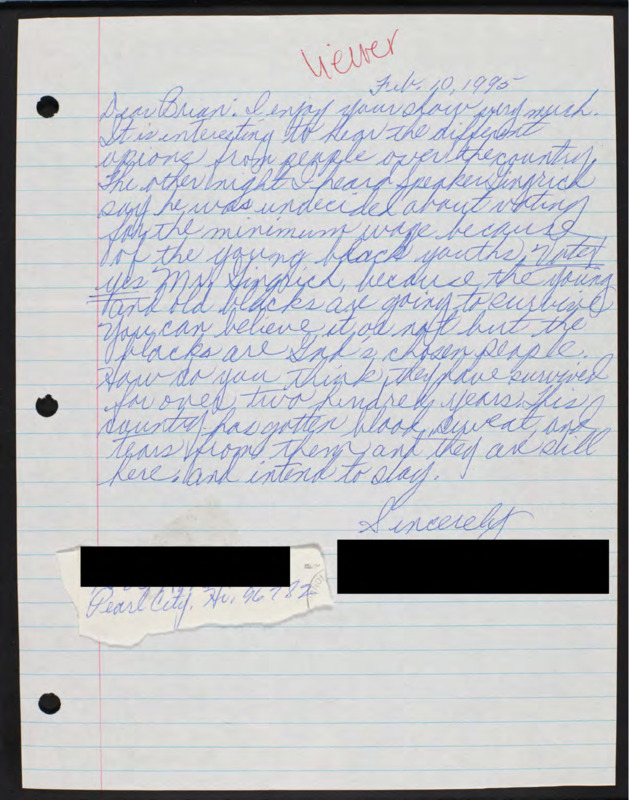 Viewer
Feb. 10, 1995
Dear Brian: I enjoy your show very much.
It is interesting to hear the different
opions from people over the country.
The other night I heard Speaker Gingrich
say he was undecided about voting
for the minimum wage because
of the young black youths. Vote
yes Mr. Gingrich, because, the young
and old blacks are going to survive
You can believe it or not but the
blacks are God's chosen people.
How do you think they have survived
for over two hundred years. This
country has gotten blood, sweat, and
tears from them and they are still
here. and intend to stay.
Sincerely
Pearl City. Hi. 96782